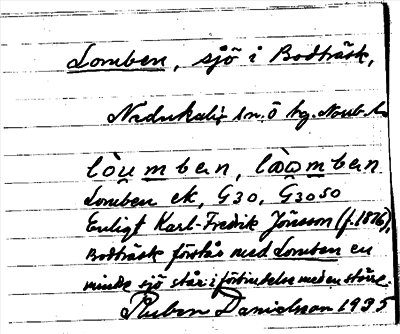 Lomben, sjö i Bodträsk,
Nederkalix sn. Ö hg. Norrb. l.
lòu̲m̲ben, låòm̲ben
Lomben ek, G30, G3050
Enligt Karl-Fredrik Jönsson (f. 1876),
Bodträsk förstår med Lomben en
mindre sjö står i förbindelse med en större.
Ruben Danielsson 1935